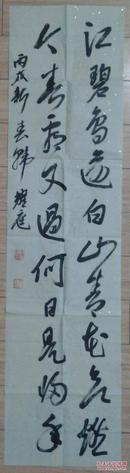 江碧鸟逾白山青花欲燃
今春看又过何日是归年
丙戌新春 耀庭